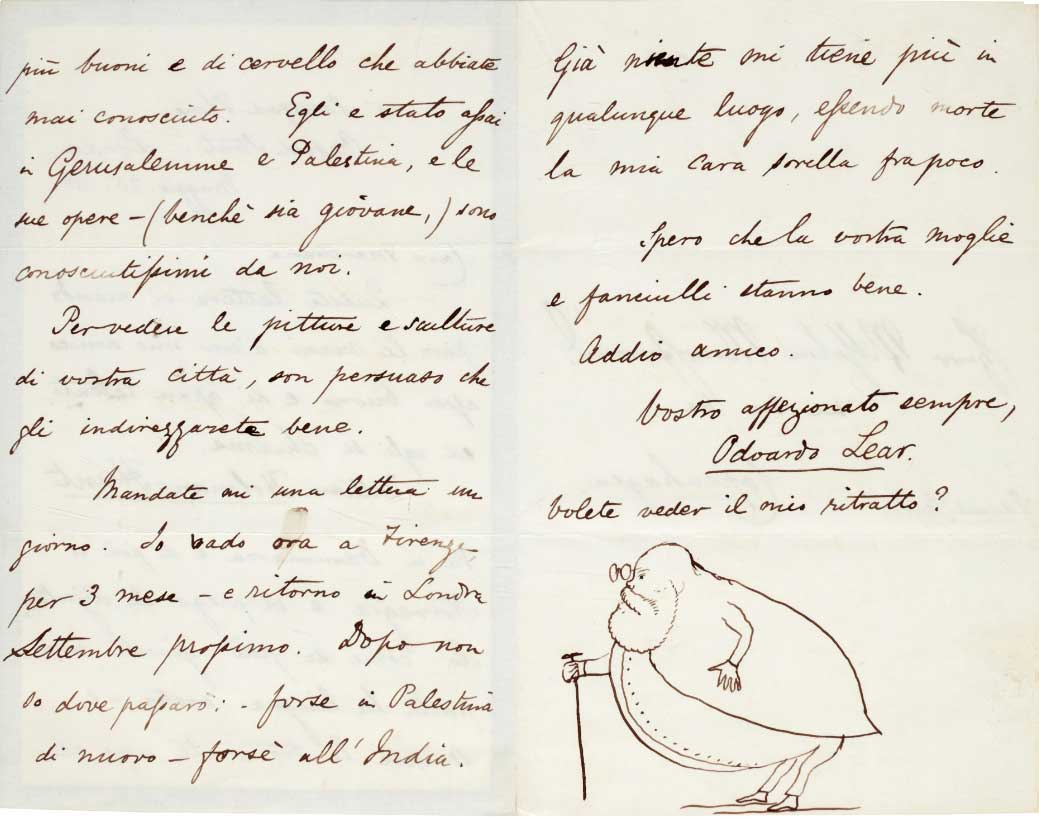 più buoni e di cervello che abbiate
mai conosciuto. Egli e stato assai
in Gerusalemme e Palestina, e le
sue opere – (benchè sia giovane,) sono
conosciutissimi da noi.
Per vedere le pitture e sculture
di vostra città, son persuaso che
gli indirezzarete bene.
Mandate mi una lettera un
giorno. Io vado ora a Firenze,
per 3 mese – e ritorno in Londra
Settembre prossimo. Dopo non
so dove passarò: – forse in Palestina
di nuovo – forsè all' India.
Già niente mi tiene più in
qualunque luogo, essendo morte
la mia cara sorella fra poco.
Spero che la vostra moglie
e fanciulli stanno bene.
Addio amico.
Vostro affezionato sempre,
Odoardo Lear.
Volete veder il mio ritratto?